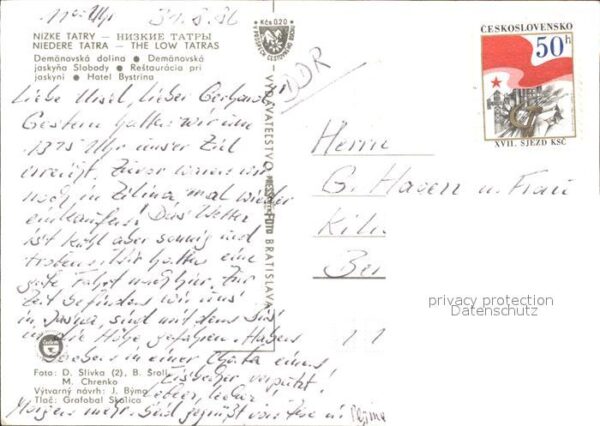 11 00 Uhr 31.8.86
NIZKE TATRY — НИЗКИЕ ТАТРЫ
NIEDERE TATRA — THE LOW TATRAS
Demänovská dolina ● Demänovská
jaskyňa Slobody ● Reštaurácia pri
jaskyni ● Hotel Bystrina
Liebe Ursel, Lieber Gerhard!
Gestern hatten wir um
13 15 Uhr unser Ziel
erreicht. Zuvor waren wir
noch in Žilina, mal wieder
einkaufen! Das Wetter
ist kühl aber sonnig und
trocken. Wir hatten eine
gute Fahrt nach hier. Zur
Zeit befinden wir uns
in Jasna, sind mit dem
in die Höhe gefahren. Haben
soeben in einer Chata einen
Eisbecher verputzt!
lecker, lecker!
Morgen mehr. Seid gegrüßt von
Foto: D. Slivka (2), B. Šroll
M. Chrenko
Výtvarný návrh: J. Býma
Tlač: Grafobal Skalica
Kčs 0,20
VYDAVATEĽSTVO PRESSFOTO BRATISLAVA
DDR
ČESKOSLOVENSKO
50h
XVII. SJEZD KSČ
Herrn
G. Haven u. Frau
privacy protection
Datenschutz